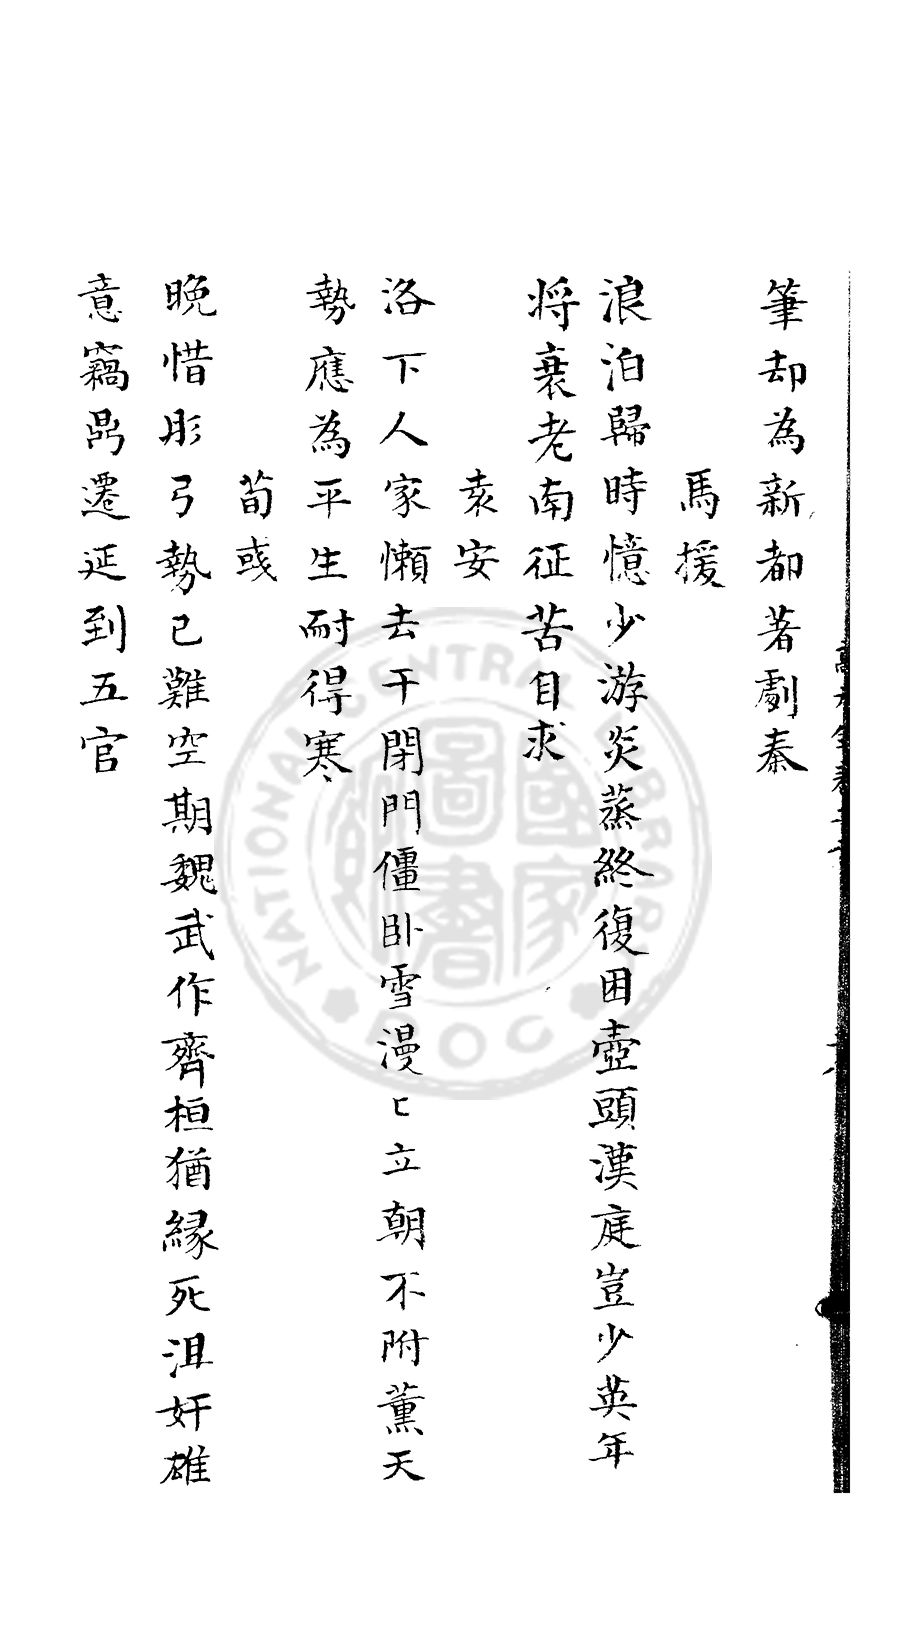 筆却為新都著劇秦
馬援
浪泊歸時憶少游炎蒸終復困壺頭漢庭豈少英年
将衰老南征苦自求
袁安
洛下人家懶去干閉門僵卧雪漫匕立朝不附薰天
勢應為平生耐得寒
荀彧
晚惜彤弓勢已難空期魏武作齊桓猶縁死沮奸雄
意竊鼎遷延到五官
NATIONAL CENTRAL LIBRARY
ROC
國家圖書館